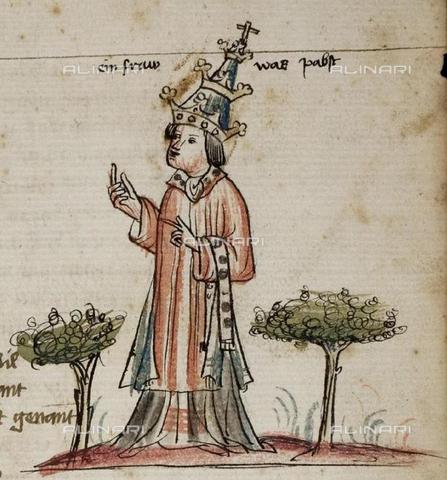 ein fraw was pabst
ALINARI ALINARI
ALINARI
ALINARI ALINARI
genant